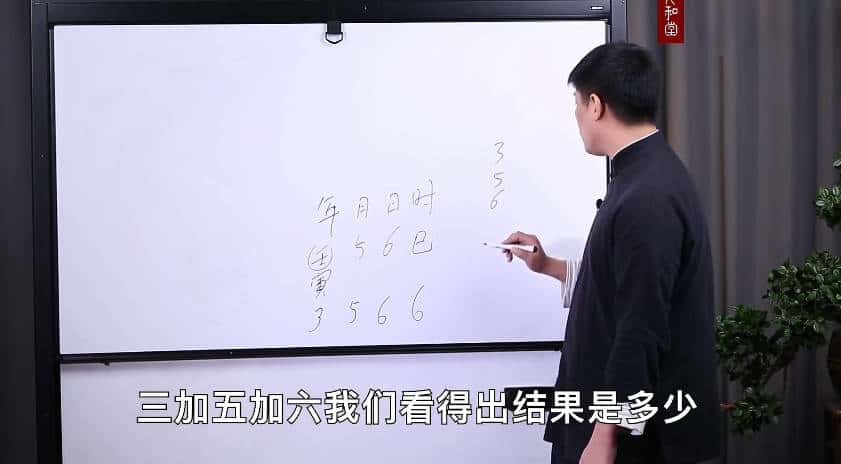 和堂
3
5
6
年月日时
壬 5 6 巳
寅
3 5 6 6
三加五加六我们看得出结果是多少